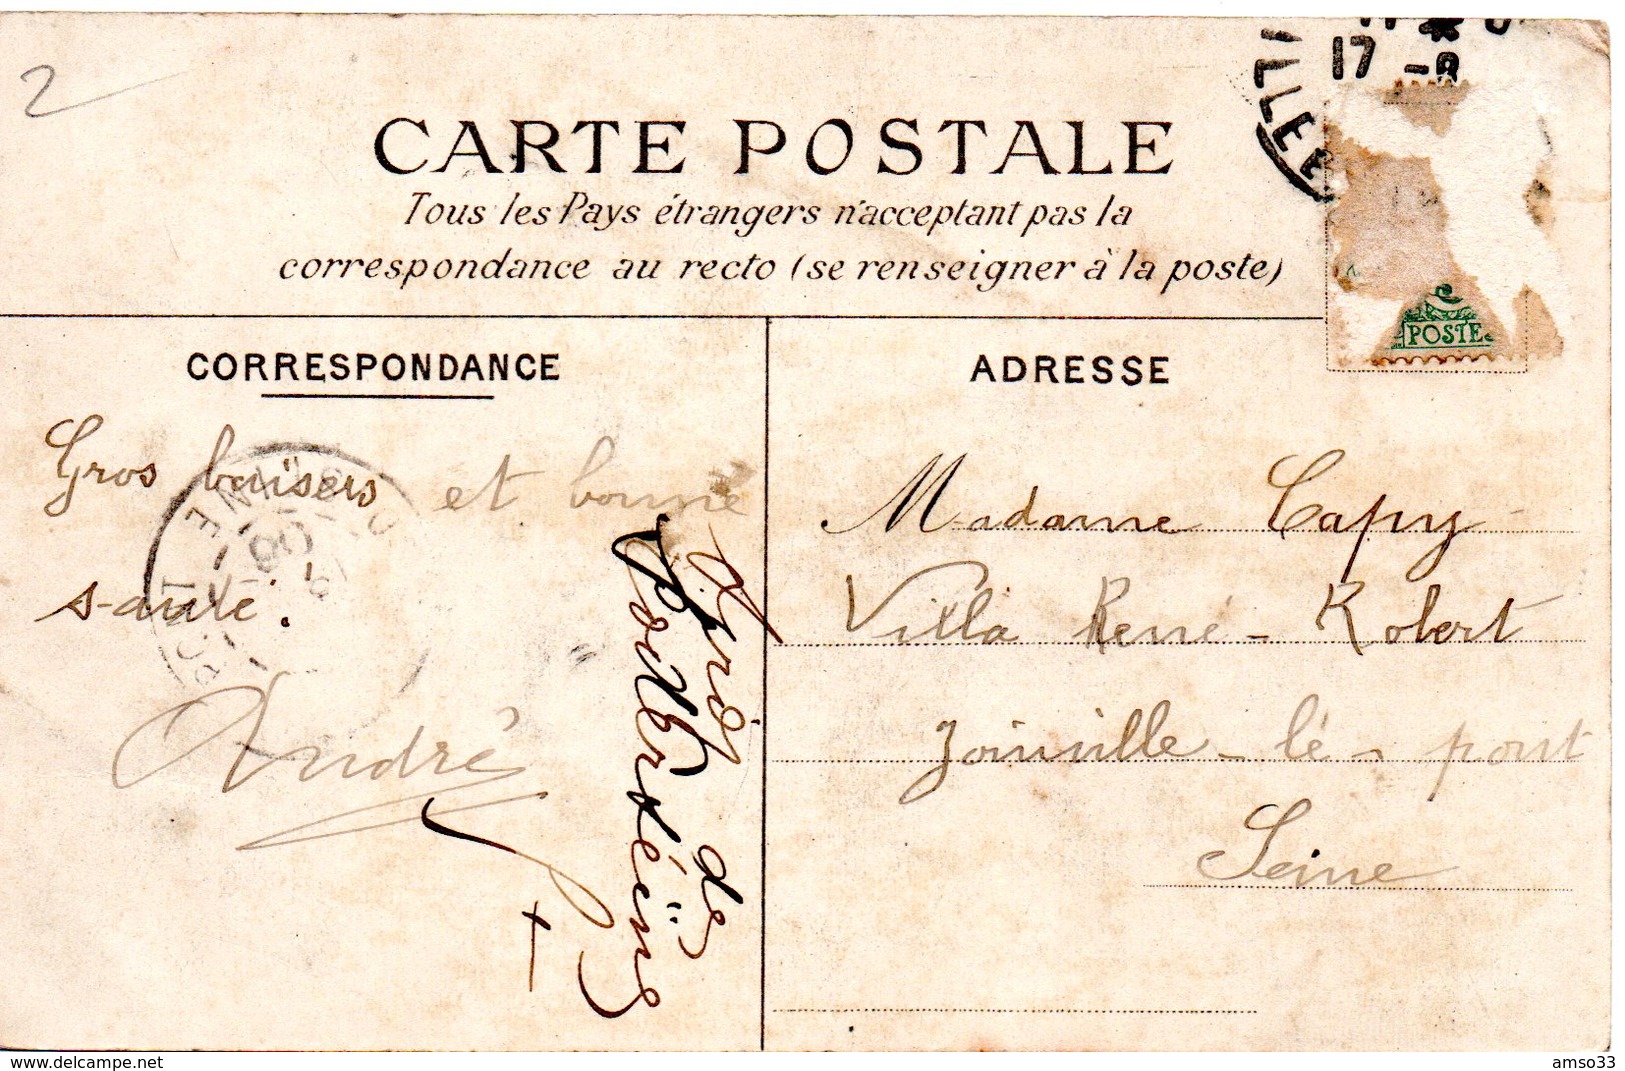 2
17
CARTE POSTALE
Tous les Pays étrangers n'acceptant pas la
correspondance au recto (se renseigner à la poste)
POSTE
CORRESPONDANCE
ADRESSE
Gros baisers et bonne
santé.
André
de
Madame Capry
Villa René-Robert
Joinville-le-pont
Seine
delcampe.net
amso33